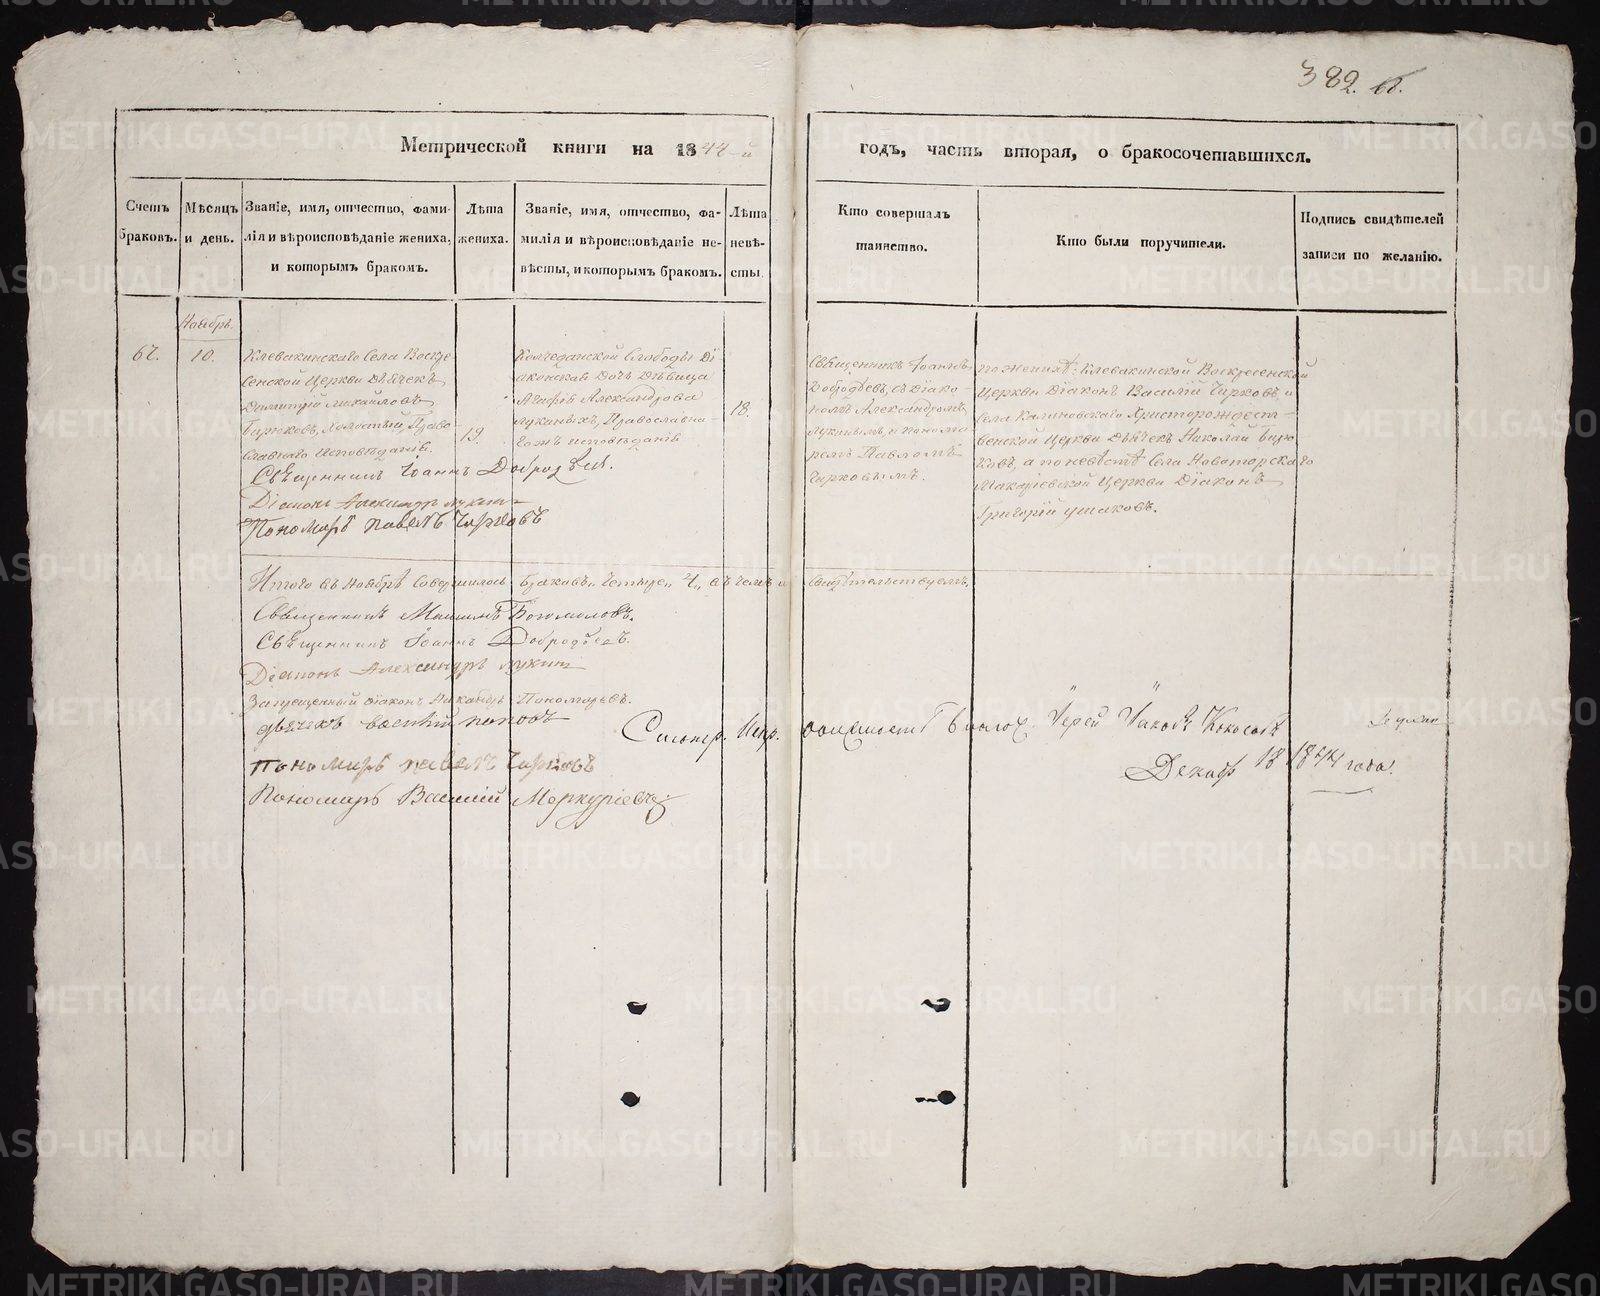 382.
Метрической книги на 1844-й
годъ, часть вторая, о бракосочетавшихся.
Счетъ браковъ.
Мѣсяцъ и день.
Званіе, имя, отчество, фами-
лія и вѣроисповѣданіе жениха,
и которымъ бракомъ.
Лѣта
жениха.
Званіе, имя, отчество, фа-
милія и вѣроисповѣданіе не-
вѣсты, и которымъ бракомъ.
Лѣта
невѣ-
сты.
Кто совершалъ
таинство.
Кто были поручители.
Подпись свидѣтелей
записи по желанію.
Ноябрь.
10.
Клевакинскаго Села Воскре-
сенской Церкви Дьячекъ
Димитрій Михайловъ
Бирюковъ, Холостый, Право-
славнаго исповѣданія.
19.
Колчеданской Слободы Ді-
аконская Дочь Дѣвица
Агафія Александрова
Лукиныхъ, Православна-
гожъ исповѣданія
18.
Священникъ Іоаннъ
Добродѣевъ, съ Діако-
номъ Александромъ
Лукинымъ, и понома-
ремъ Павломъ
Чирковымъ.
по женихѣ: Клевакинской Воскресенской
Церкви Діаконъ Василій Чирковъ, и
села Калиновскаго Христорождест-
венской Церкви Дьячекъ Николай Бирю-
ковъ, а по невѣстѣ Села Новоторскаго
Макаріевской Церкви Діаконъ
Григорій Ушаковъ.
Священникъ Іоаннъ Добродѣевъ
Діаконъ Александръ Лукинъ
Пономарь Павелъ Чирковъ
Итого въ Ноябрѣ Совершилось Браковъ Четыре 4, въ чемъ и свидѣтельствуемъ.
Священникъ Богомоловъ.
Священникъ Іоаннъ Добродѣевъ.
Діаконъ Александръ Лукинъ
Запрещенный діаконъ Пономаревъ.
Дьячекъ Василій Поповъ
Іерей Іаковъ
Декабр 18 1844 года.
Пономарь Павелъ Чирковъ
Пономарь Василій Меркурьевъ
METRIKI.GASO-URAL.RU